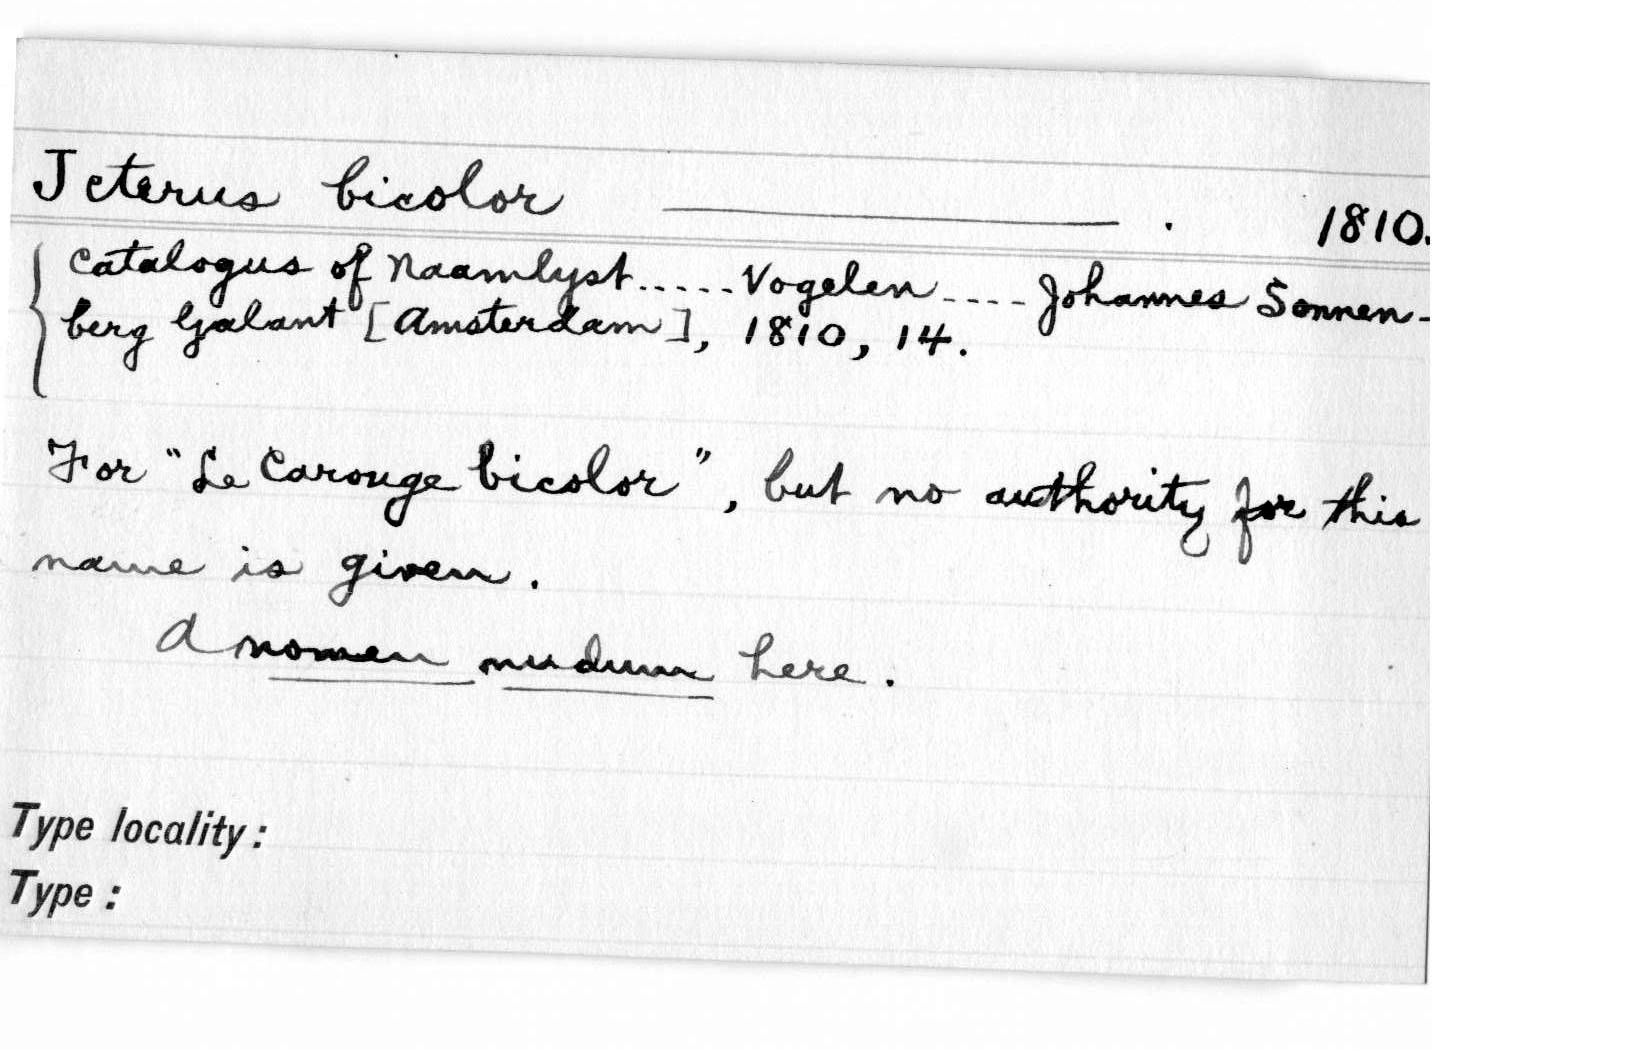 Icterus bicolor ———. 1810.
Catalogus of Naamlyst.....Vogelen....Johannes Sonnen-
berg Galant [Amsterdam], 1810, 14.
For "Le Carouge bicolor", but no authority for this
name is given.
A nomen nudum here.
Type locality:
Type: